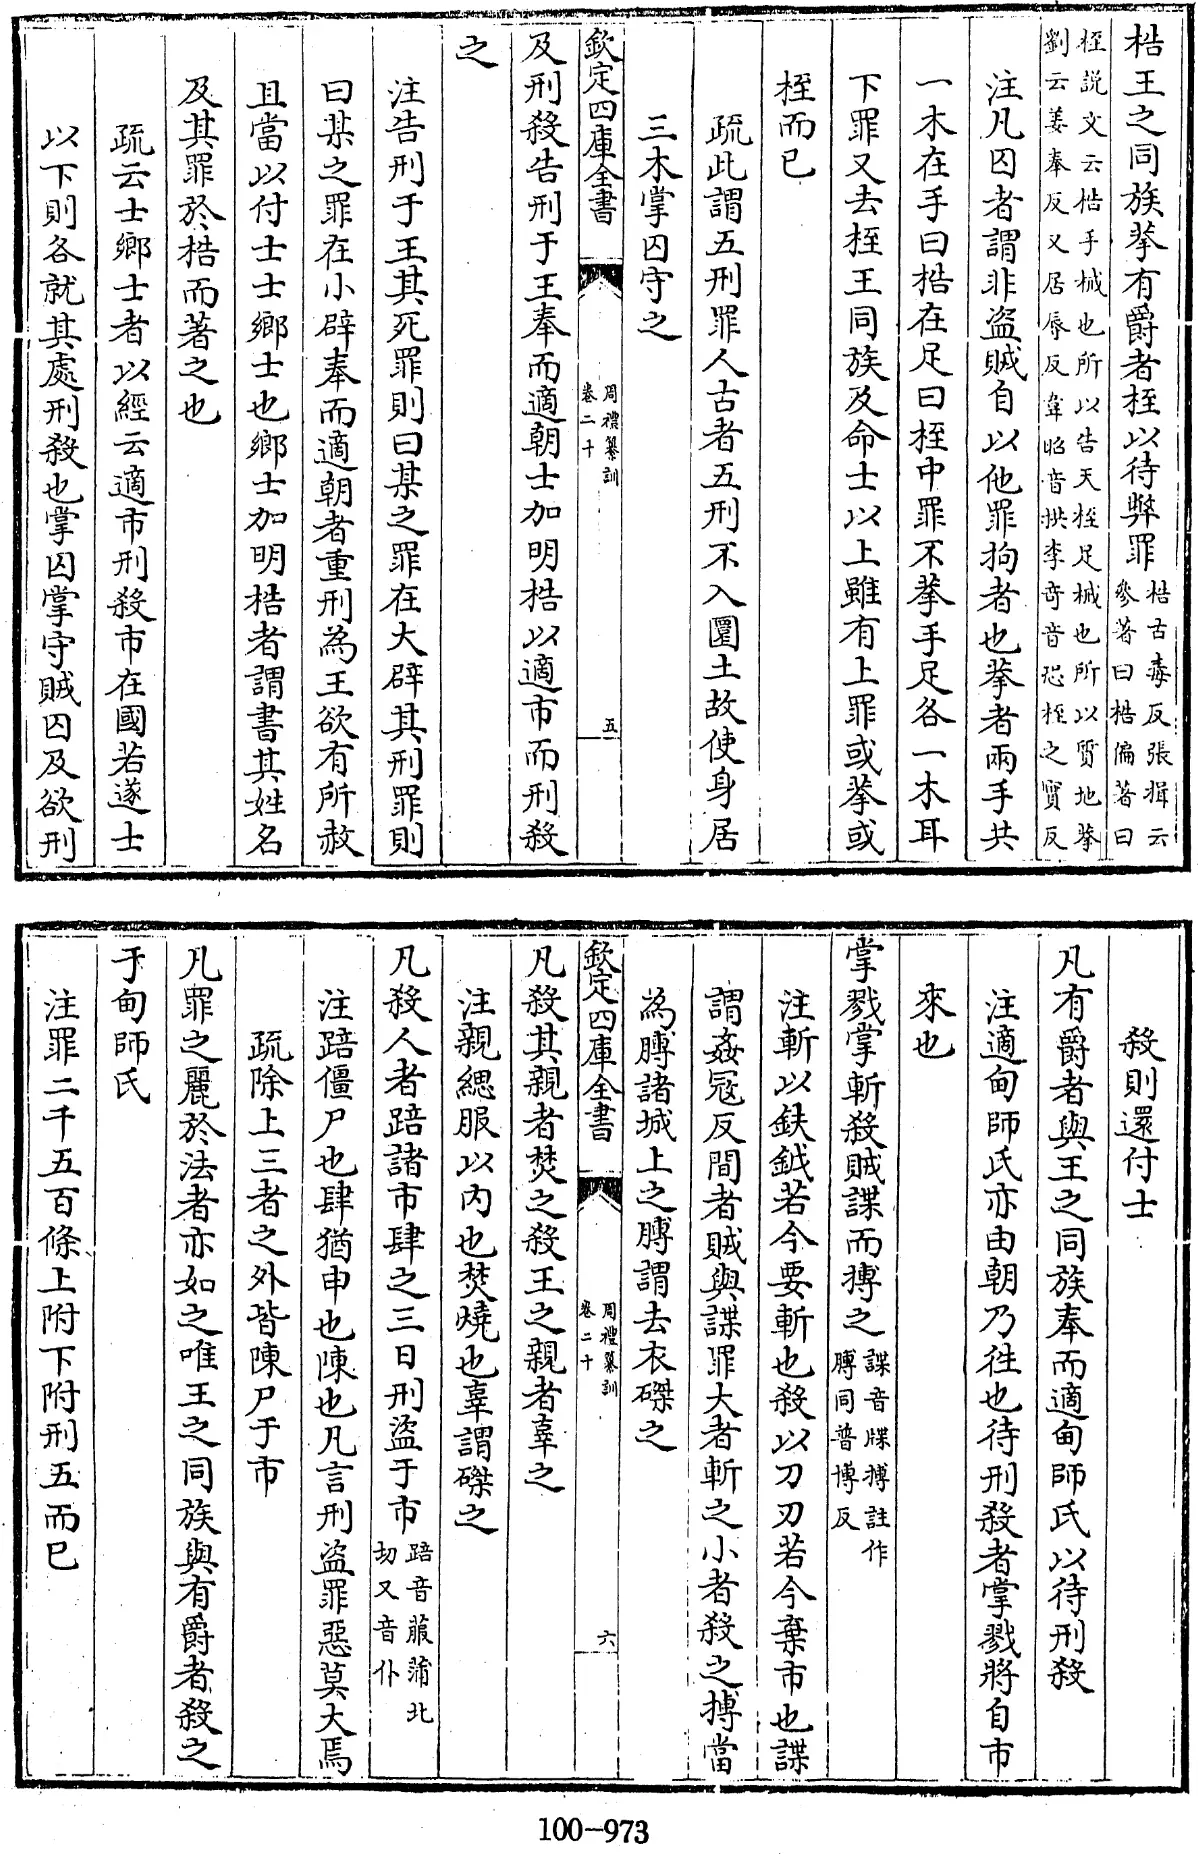 梏王之同族拲有爵者桎以待弊罪
梏古毒反張揖云
參著曰梏偏著曰
桎説文云梏手械也所以告天桎足械也所以質地拲
劉云姜奉反又居辱反韋昭音拱李奇音恐桎之實反
注凡囚者謂非盜賊自以他罪拘者也拲者兩手共
一木在手曰梏在足曰桎中罪不拲手足各一木耳
下罪又去桎王同族及命士以上雖有上罪或拲或
桎而已
疏此謂五刑罪人古者五刑不入圜土故使身居
三木掌囚守之
欽定四庫全書
周禮纂訓
卷二十
五
及刑殺告刑于王奉而適朝士加明梏以適市而刑殺
之
注告刑于王其死罪則曰某之罪在大辟其刑罪則
曰某之罪在小辟奉而適朝者重刑為王欲有所赦
且當以付士士鄉士也鄉士加明梏者謂書其姓名
及其罪於梏而著之也
疏云士鄉士者以經云適市刑殺市在國若遂士
以下則各就其處刑殺也掌囚掌守賊囚及欲刑
殺則還付士
凡有爵者與王之同族奉而適甸師氏以待刑殺
注適甸師氏亦由朝乃往也待刑殺者掌戮將自市
來也
掌戮掌斬殺賊諜而搏之
諜音牒搏註作
膊同普博反
注斬以鈇鉞若今要斬也殺以刀刃若今棄市也諜
謂姦寇反間者賊與諜罪大者斬之小者殺之搏當
為膊諸城上之膊謂去衣磔之
欽定四庫全書
周禮纂訓
卷二十
六
凡殺其親者焚之殺王之親者辜之
注親緦服以内也焚燒也辜謂磔之
凡殺人者踣諸市肆之三日刑盜于市
踣音菔蒲北
切又音仆
注踣僵尸也肆猶申也陳也凡言刑盜罪惡莫大焉
疏除上三者之外皆陳尸于市
凡罪之麗於法者亦如之唯王之同族與有爵者殺之
于甸師氏
注罪二千五百條上附下附刑五而已
100-973